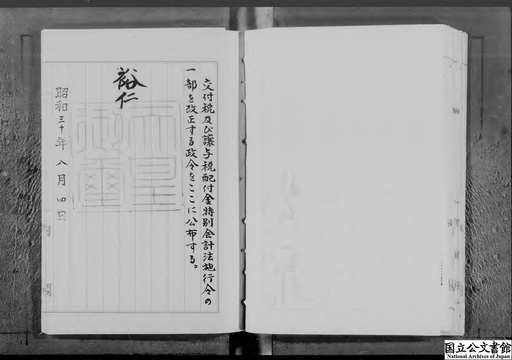 交付税及び譲与税配付金特別会計法施行令の
一部を改正する政令をここに公布する。
裕仁
天皇御璽
昭和三十年八月四日
国立公文書館
National Archives of Japan